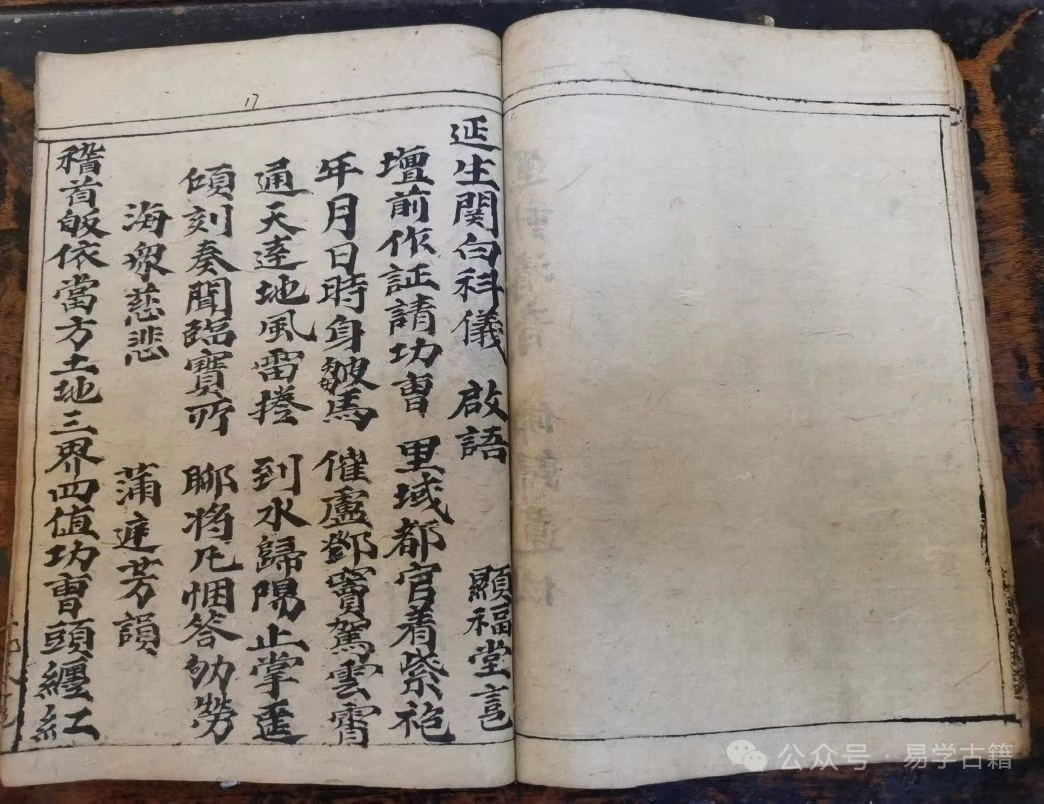 延生関白科儀 啟語 顯福堂言
壇前作証請功曹 里域都官着紫袍
年月日時身皷馬 催盧鄧竇駕雲霄
通天達地風雷捲 到水歸陽止掌
頃刻奏聞臨寶所 聊将凢悃答劬勞
海衆慈悲 蒲筵芳韻
稽首皈依當方土地三界四值功曹頭纏紅
17
公众号·易学古籍